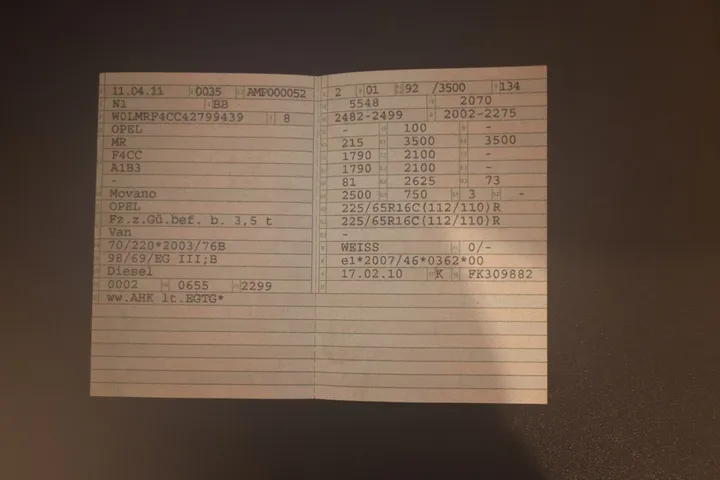 11.04.11 0035 AMP000052
N1 BB
W0LMRF4CC42799439 8
OPEL
MR
F4CC
A1B3
-
Movano
OPEL
Fz.z.Gü.bef. b. 3,5 t
Van
70/220*2003/76B
98/69/EG III;B
Diesel
0002 0655 2299
ww.AHK lt.EGTG*
2 01 92 /3500 134
5548 2070
2482-2499 2002-2275
- 100 -
215 3500 3500
1790 2100 -
1790 2100 -
81 2625 73
2500 750 3 -
225/65R16C(112/110)R
225/65R16C(112/110)R
-
WEISS 0/-
e1*2007/46*0362*00
17.02.10 K FK309882